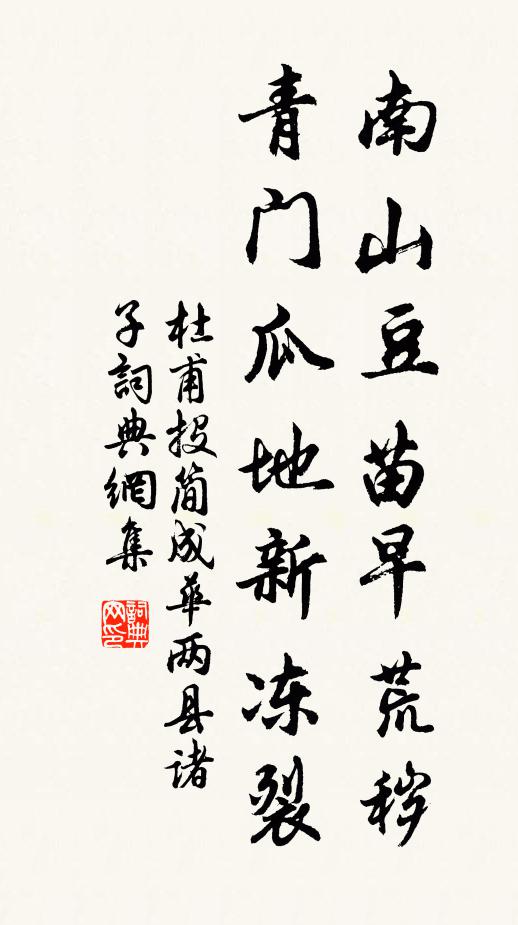 南山豆苗早荒秽
青门瓜地新冻裂
杜甫投简成华两县诸
子詞典網集
詞典
网印